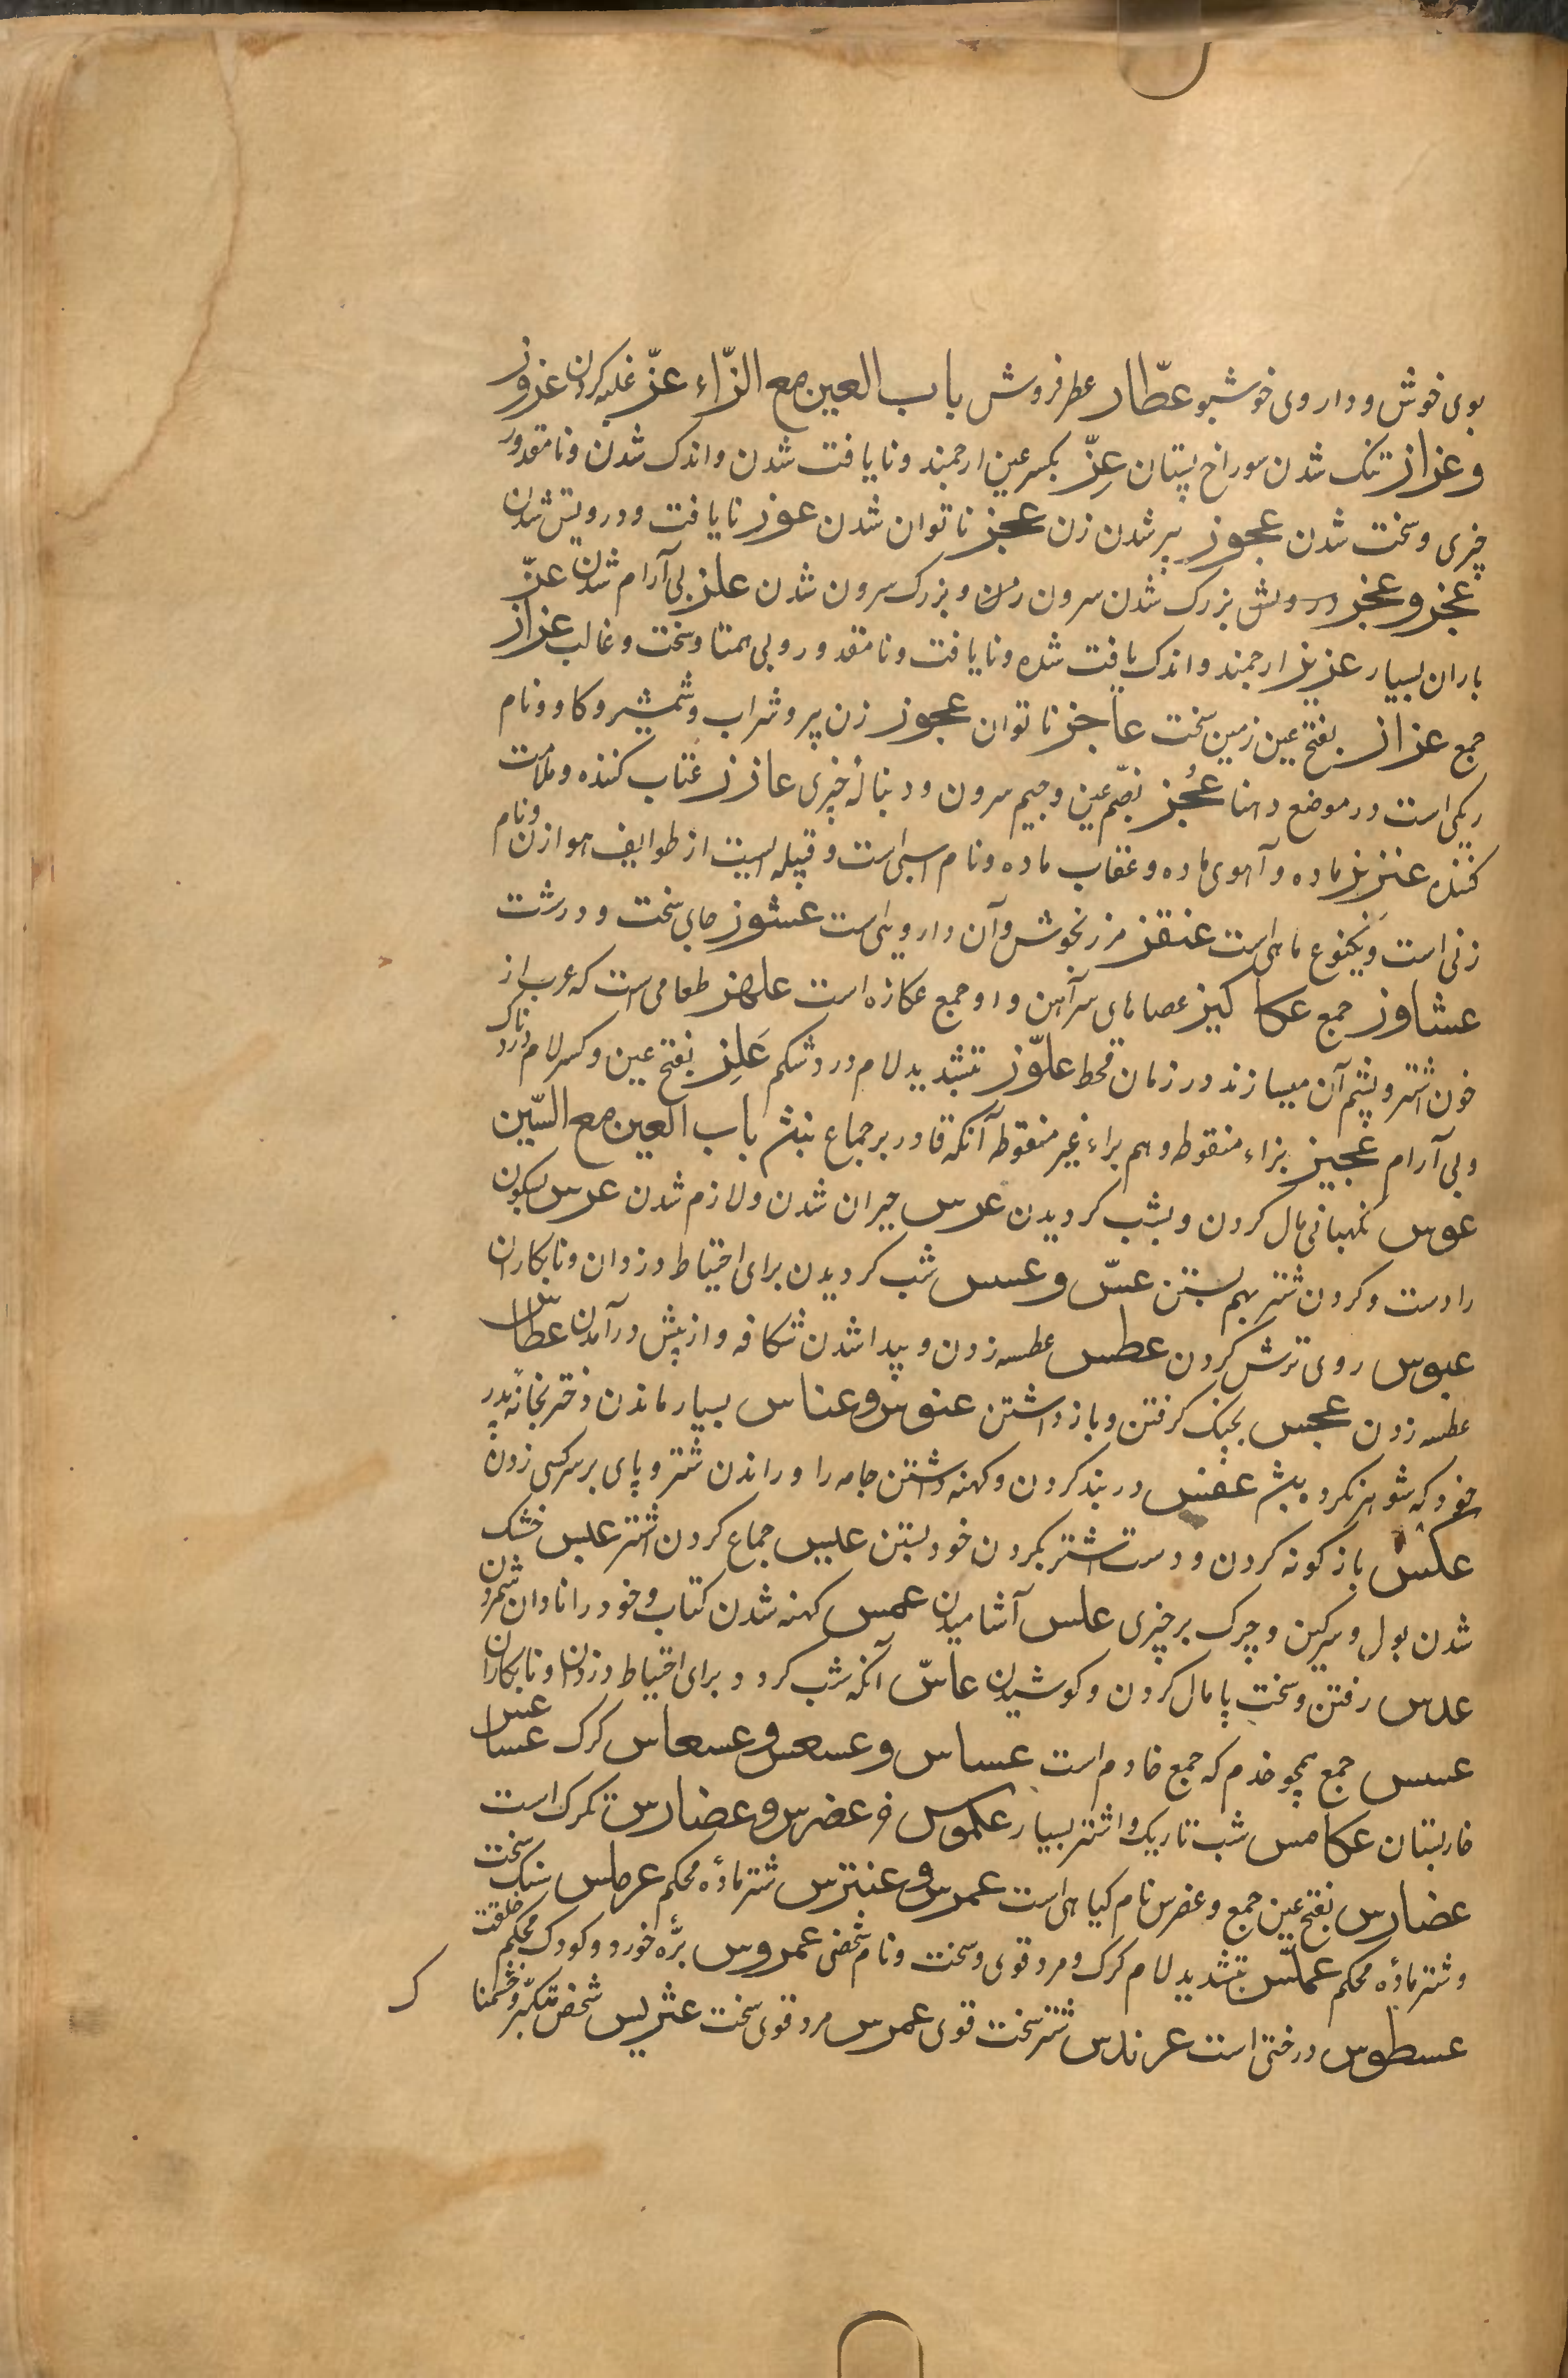 بوی خوش و داروی خوشبو عطّار عطر فروش باب العین مع الزّاء عزّ غلبه کردن عزوز
و عزاز تنک شدن سوراخ پستان عِزّ بکسر عین ارجمند و نایافت شدن و اندک شدن و نامقدور
چیزی و سخت شدن عجوز پیر شدن زن عجز ناتوان شدن عوز نایافت و درویش شدن
عجز و عجز بزرک شدن سرون زن و بزرک سرون شدن علز بی آرام شدن عزّ
باران بسیار عزیز ارجمند و اندک یافت شده و نایافت و نامقدور و بی همتا و سخت و غالب عزاز
جمع عزاز بفتح عین زمین سخت عاجز ناتوان عجوز زن پیر و شراب و شمشیر و کاو و نام
ریکی است در موضع دهنا عُجُز بضمّ عین و جیم سرون و دنبالهٔ چیزی عازز عتاب کننده و ملامت
کننده عنز بز ماده و آهوی ماده و عقاب ماده و نام اسبی است و قبیله ایست از طوایف هوازن و نام
زنی است و یکنوع ماهی است عنقز مرزنخوش و آن دارویی است عشوز جای سخت و درشت
عشاوز جمع عکاکیز عصاهای سر آهن و او جمع عکازه است علهز طعامی است که عرب از
خون اشتر و پشم آن میسازند در زمان قحط علّوز بتشدید لام درد شکم عَلِز بفتح عین و کسر لام دردناک
و بی آرام عجیز بزاء منقوطه و هم براء غیر منقوطه آنکه قادر بر جماع نبشد باب العین مع السّین
عوس نکهبانی مال کردن و بشب کردیدن عرس حیران شدن و لازم شدن عرس بسکون
را دست و کردن شتر بهم بستن عسّ و عسس شب کردیدن برای احتیاط دزدان و نابکاران
عبوس روی ترش کردن عطس عطسه زدن و پیدا شدن شکافه و از پیش در آمدن عطاس
عطسه زدن عجس بچنک کرفتن و باز داشتن عنوس و عناس بسیار ماندن دختر بخانهٔ پدر
خود که شوهر نکرده بشد عفس در بند کردن و کهنه داشتن جامه را و راندن شتر و پای بر سر کسی زدن
عکس باز کونه کردن و دست اشتر بکردن خود بستن عیس جماع کردن اشتر عبس خشک
شدن بول و سرکین و چرک بر چیزی علس آشامیدن عمس کهنه شدن کتاب و خود را نادان شمردن
عدس رفتن و سخت پامال کردن و کوشیدن عاسّ آنکه شب کردد برای احتیاط دزدان و نابکاران
عسس جمع همچو خدم که جمع خادم است عساس و عسعس و عسعاس کرک عساعس
خاربستان عکامس شب تاریک و اشتر بسیار عکموس خر عضرس و عضارس تکرک است
عضارس بفتح عین جمع و عضرس نام کیاهی است عمرس و عنترس شتر مادهٔ محکم عرمس سنک سخت
و شتر مادهٔ محکم عملّس بتشدید لام کرک و مرد قوی و سخت و نام شخصی عمروس برّه خورد و کودک محکم خلقت
عسطوس درختی است عرندس شتر سخت قوی عمرس مرد قوی سخت عتریس شخص متکبّر و خشمناک